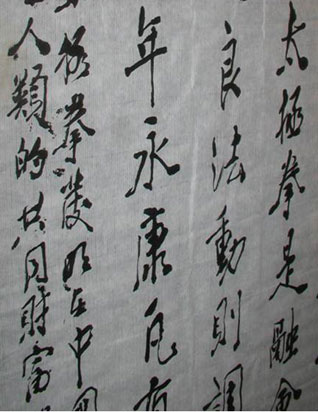 太极拳是融会
良法動則調
年永康凡有
极拳發明在中國
人類的共同財富